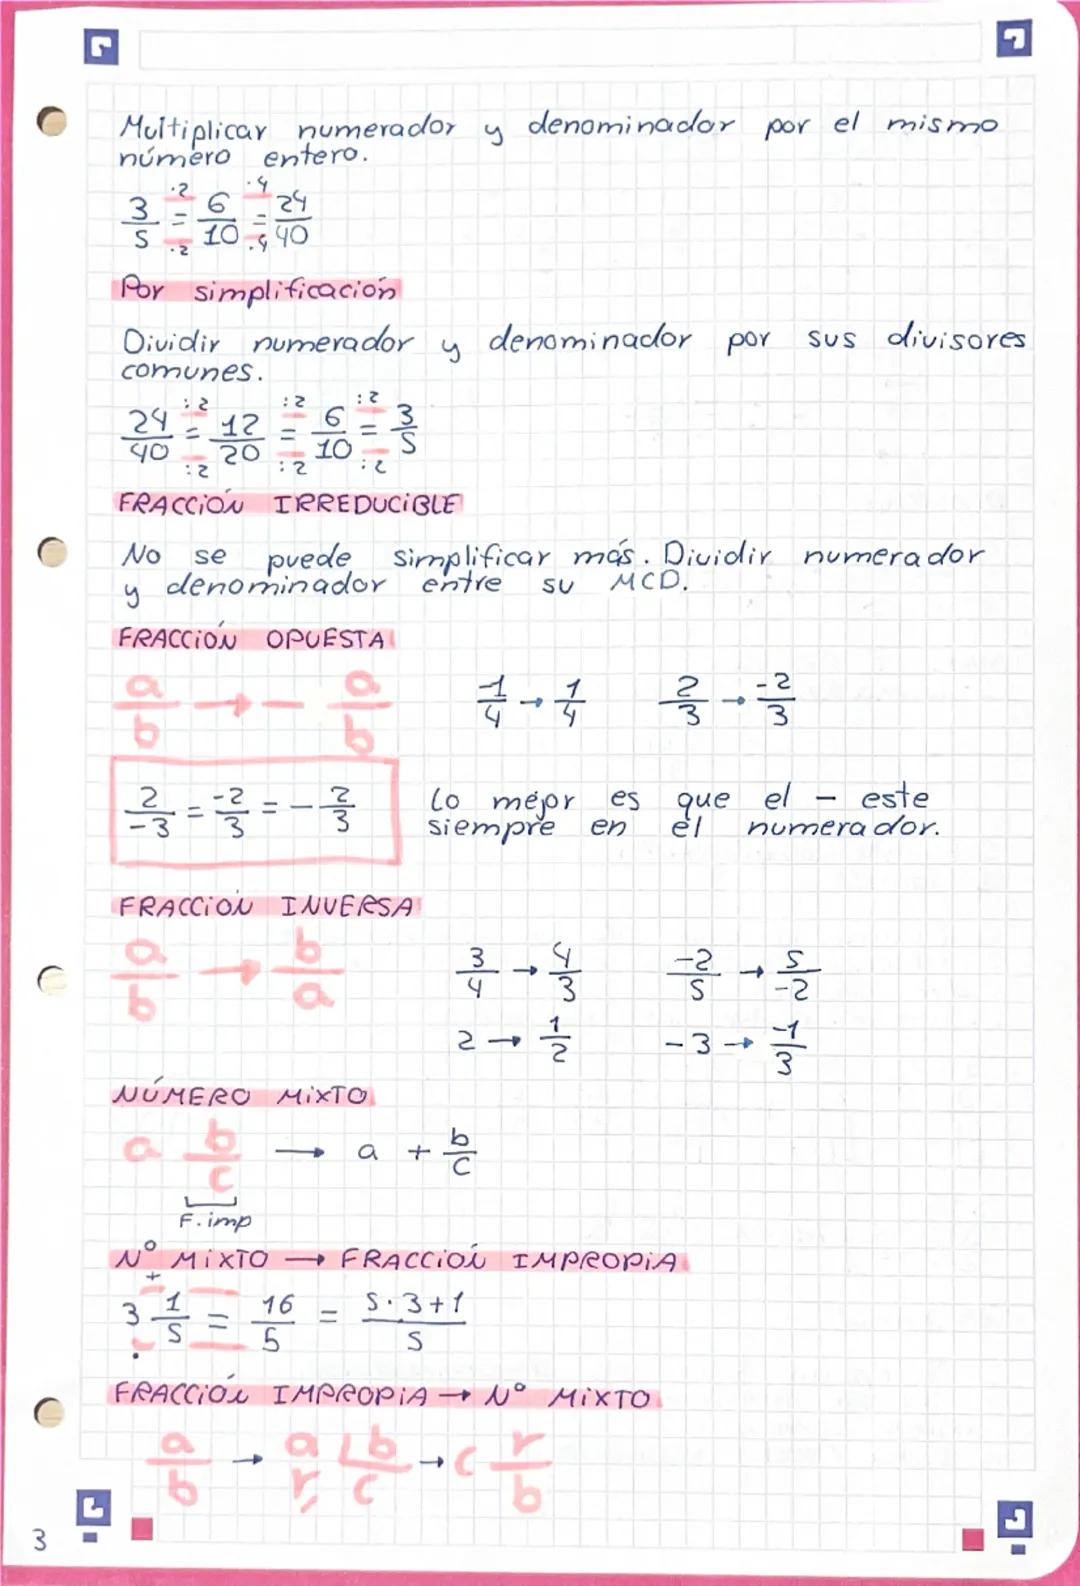 Multiplicar numerador y denominador por el mismo
número entero.
·2 ·4
3/5 = 6/10 = 24/40
·2 ·4
Por simplificación
Dividir numerador y denominador por sus divisores
comunes.
:2 :2 :2
24/40 = 12/20 = 6/10 = 3/5
:2 :2 :2
FRACCIÓN IRREDUCIBLE
No se puede simplificar más. Dividir numerador
y denominador entre su MCD.
FRACCIÓN OPUESTA
a/b → - a/b -1/4 → 1/4 2/3 → -2/3
2/-3 = -2/3 = - 2/3
Lo mejor es que el - este
siempre en el numerador.
FRACCIÓN INVERSA
a/b → b/a 3/4 → 4/3 -2/5 → 5/-2
2 → 1/2 -3 → -1/3
NÚMERO MIXTO
a b/c → a + b/c
F. imp
Nº MIXTO → FRACCIÓN IMPROPIA
+
3 1/5 = 16/5 = 5·3+1/5
·
FRACCIÓN IMPROPIA → Nº MIXTO
a/b → a |b → c r/b
r, c
3